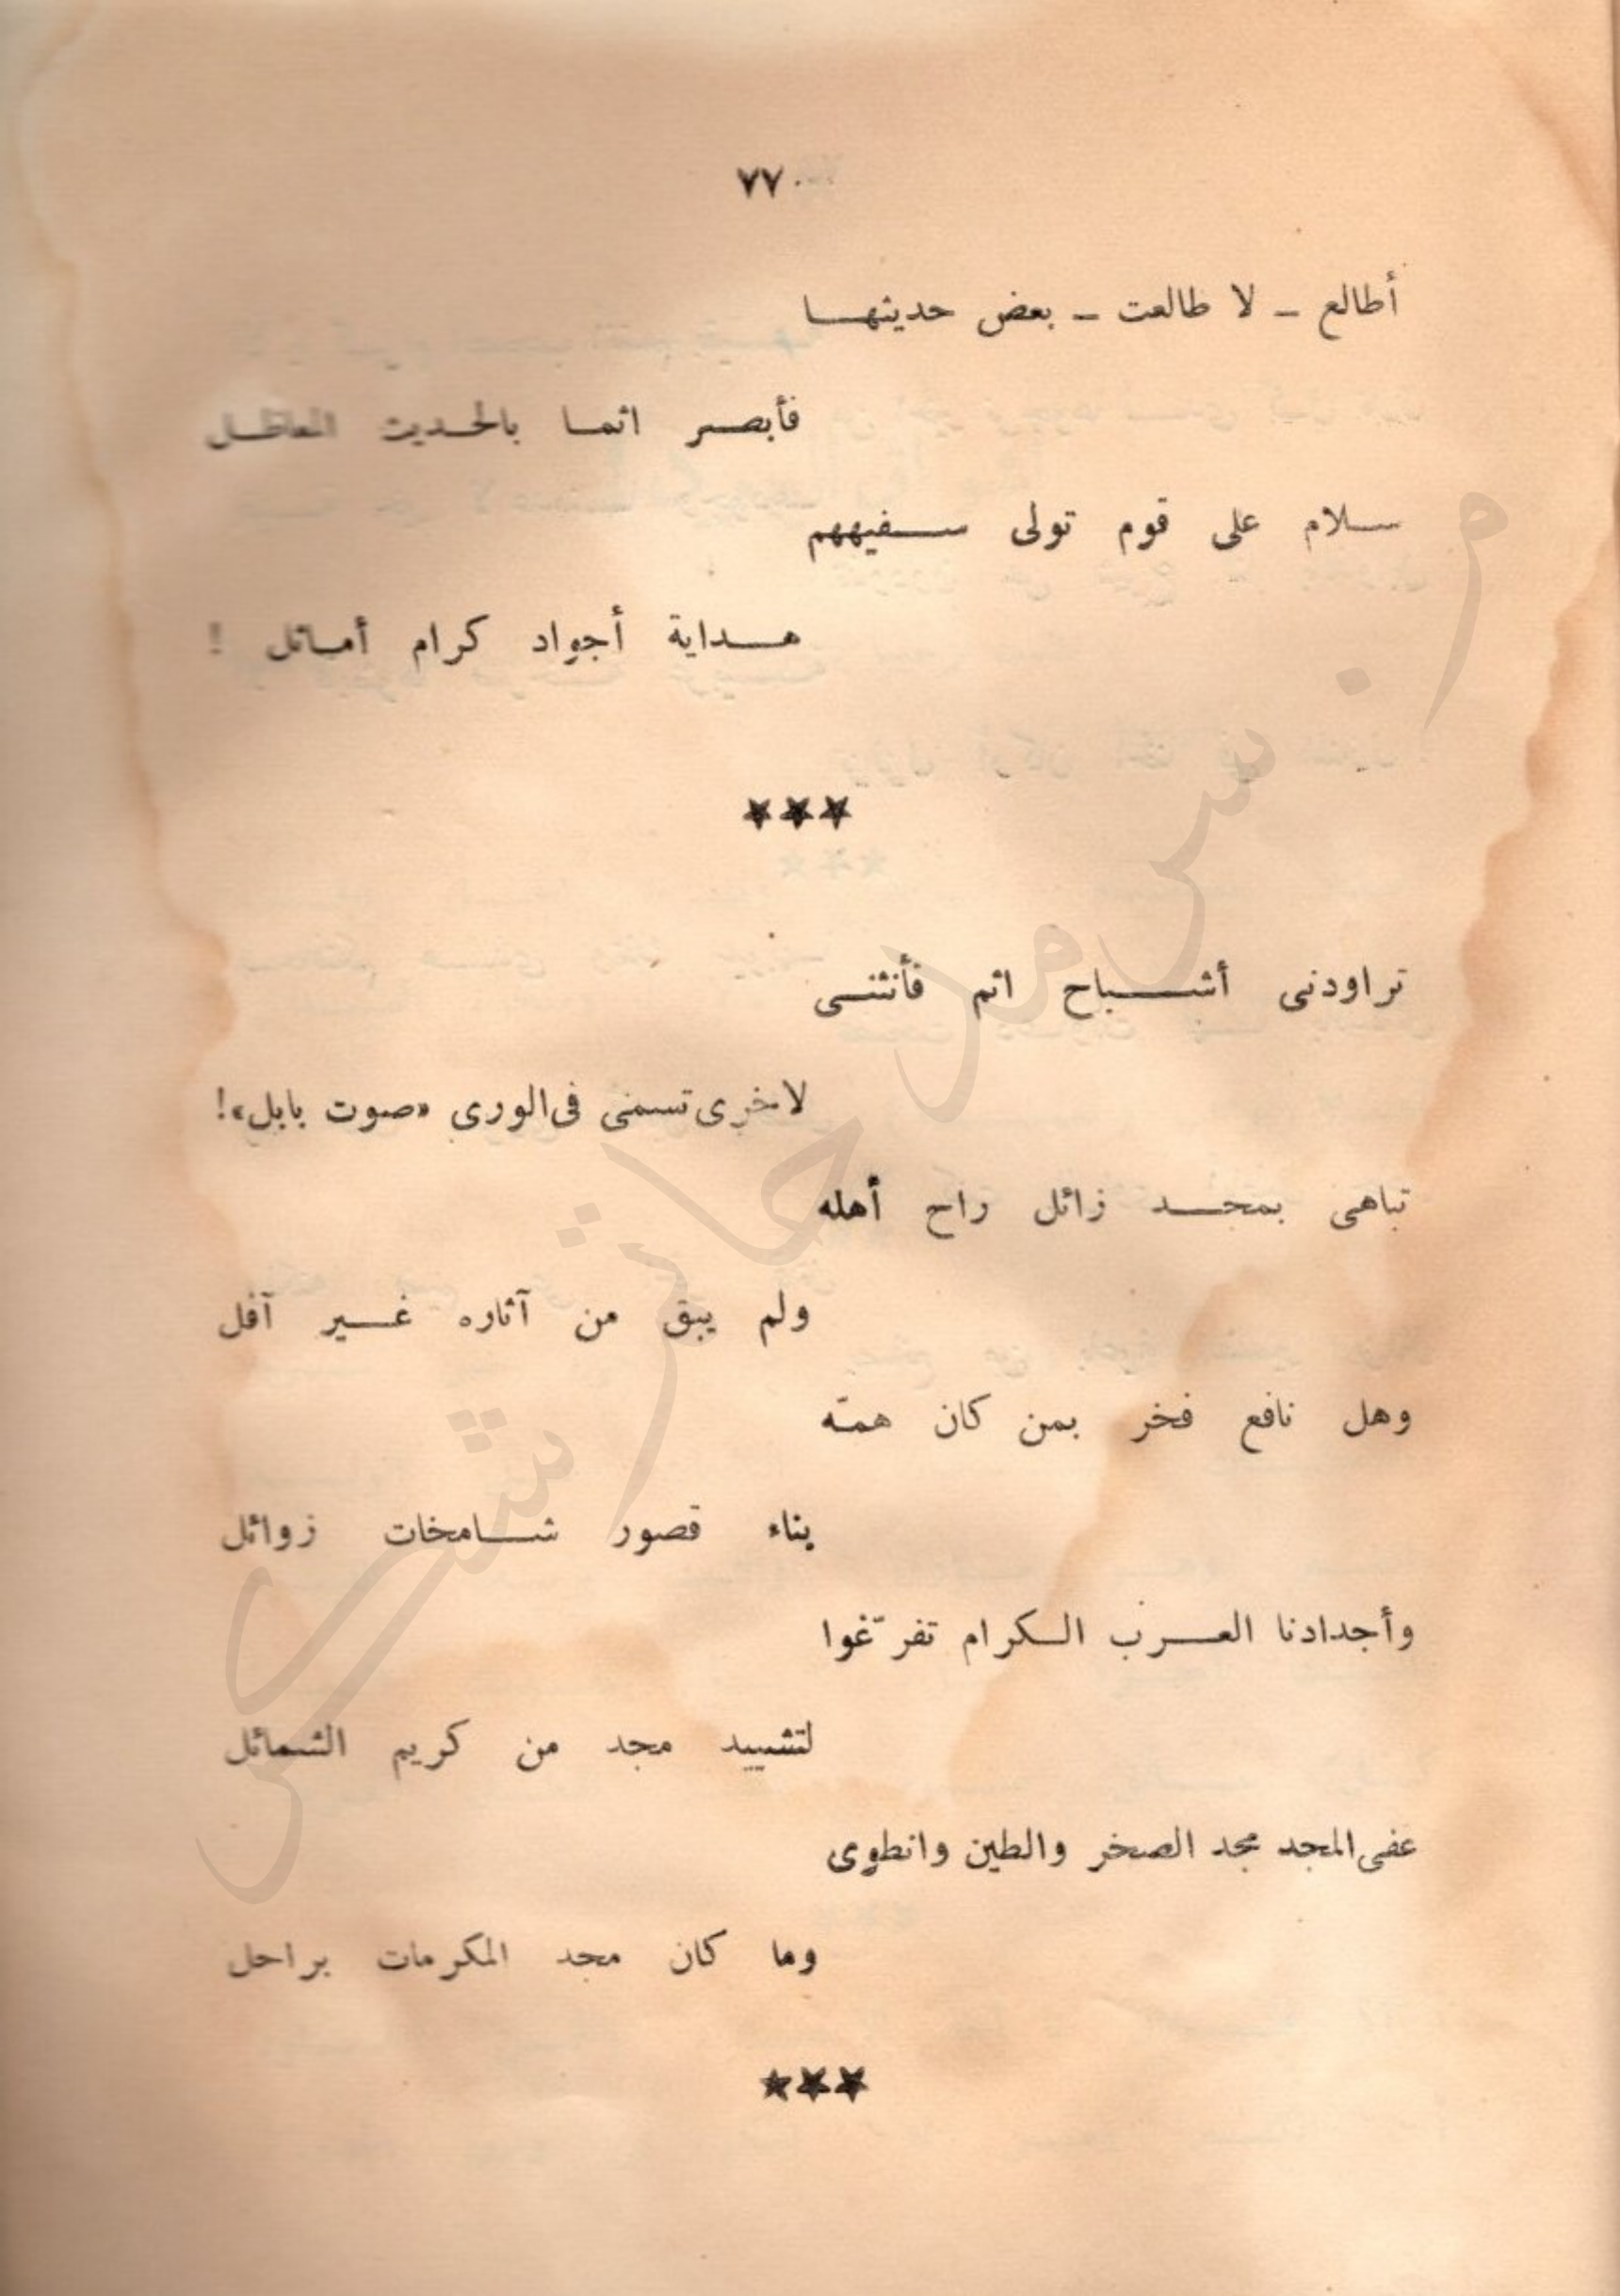 ٧٧
أطالع ــ لا طالعت ــ بعض حديثها
فأبصر اثما بالحديث المعاظل
سلام على قوم تولى سفيههم
هداية أجواد كرام أماثل !
***
تراودنى أشباح اثم فأنثنى
لاخرى تسمى فى الورى «صوت بابل»!
تباهى بمجد زائل راح أهله
ولم يبق من آثاره غير آفل
وهل نافع فخر بمن كان همّه
بناء قصور شامخات زوائل
وأجدادنا العرب الكرام تفرّغوا
لتشييد مجد من كريم الشمائل
عفى المجد مجد الصخر والطين وانطوى
وما كان مجد المكرمات براحل
***